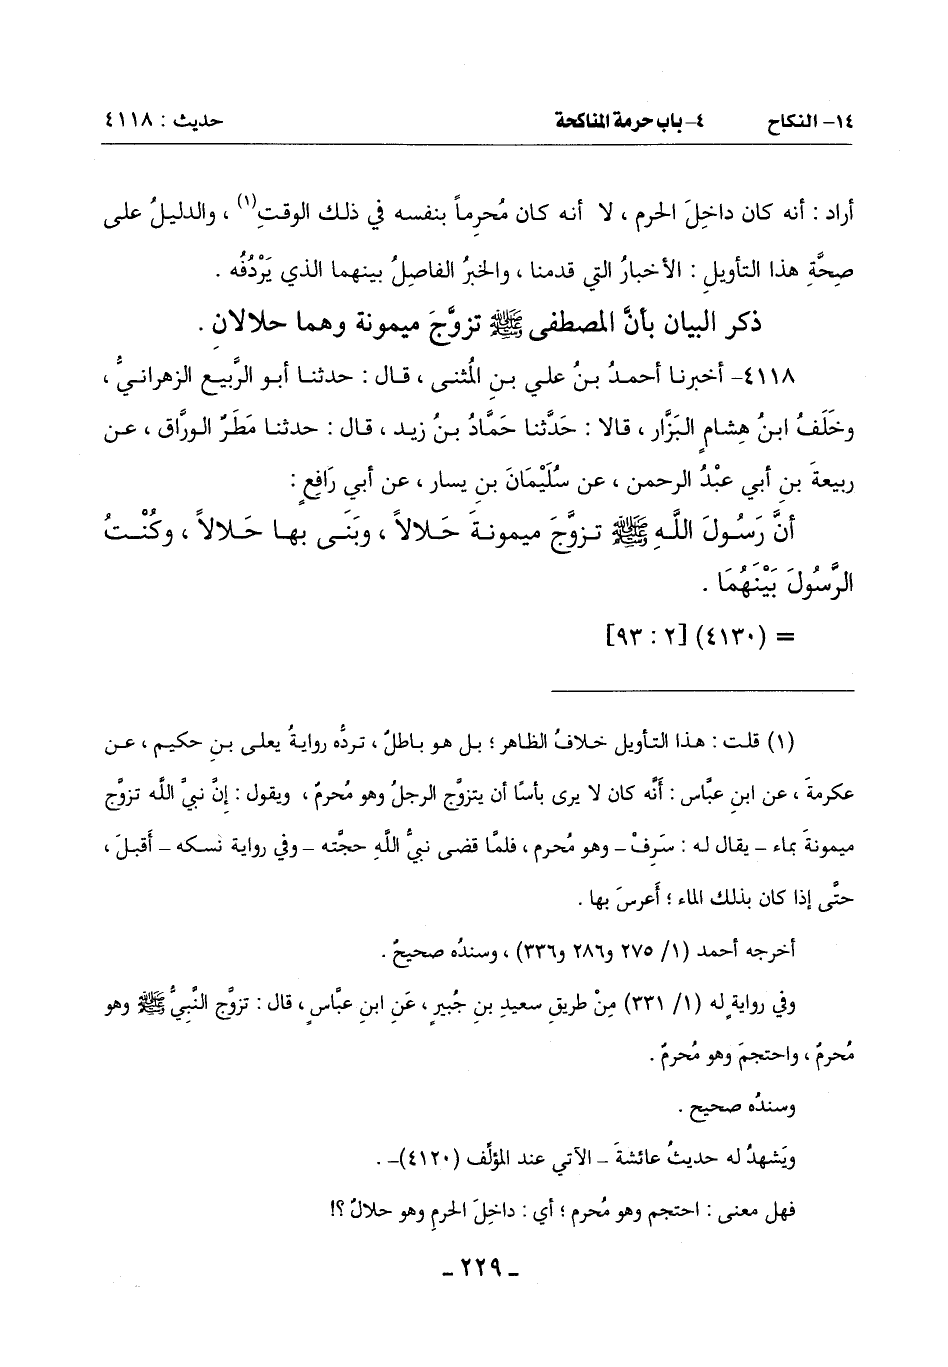 ١٤- النكاح ٤- باب حرمة المناكحة حديث : ٤١١٨
أراد : أنه كان داخِلَ الحرم ، لا أنه كان مُحرِماً بنفسه في ذلك الوقتِ(١) ، والدليلُ على
صِحَّةِ هذا التأويلِ : الأخبارُ التي قدمنا ، والخبرُ الفاصِلُ بينهما الذي يَرْدُفُه .
ذكر البيان بأنَّ المصطفى ﷺ تزوَّجَ ميمونة وهما حلالان .
٤١١٨- أخبرنا أحمدُ بنُ علي بنِ المُثنى ، قال : حدثنا أبو الرَّبيع الزهرانيُّ ،
وخَلَفُ ابنُ هِشامٍ البَزَّار ، قالا : حَدَّثنا حَمَّادُ بنُ زيد ، قال : حدثنا مَطَرٌ الورَّاق ، عن
ربيعةَ بنِ أبي عبْدُ الرحمن ، عن سُلَيْمَانَ بنِ يسار ، عن أبي رَافعٍ :
أنَّ رَسُولَ اللَّهِ ﷺ تزوَّجَ ميمونةَ حَلالاً ، وبَنَى بها حَلالاً ، وكُنْتُ
الرَّسُولَ بَيْنَهُمَا .
= (٤١٣٠) [٢ : ٩٣]
(١) قلت : هذا التأويل خلافُ الظاهر ؛ بل هو باطلٌ ، تردُّه روايةُ يعلى بنِ حكيم ، عن
عكرمةَ ، عن ابنِ عبَّاس : أنَّه كان لا يرى بأسًا أن يتزوَّج الرجلُ وهو مُحرمٌ ، ويقول : إنَّ نبيَّ اللَّه تزوَّج
ميمونةَ بماء – يقال له : سَرِفْ – وهو مُحرم ، فلمَّا قضى نبيُّ اللَّهِ حجَّته – وفي رواية نسكه – أقبلَ ،
حتَّى إذا كان بذلك الماء ؛ أَعرسَ بها .
أخرجه أحمد (١/ ٢٧٥ و٢٨٦ و٣٣٦) ، وسندُه صحيحٌ .
وفي روايةٍ له (١/ ٣٣١) مِنْ طريقِ سعيدِ بنِ جُبيرٍ ، عَنِ ابنِ عبَّاسٍ ، قال : تزوَّج النَّبيُّ ﷺ وهو
مُحرمٌ ، واحتجمَ وهو مُحرمٌ .
وسندُه صحيح .
ويَشهدُ له حديثُ عائشةَ – الآتي عند المؤلَّف (٤١٢٠)– .
فهل معنى : احتجم وهو مُحرم ؛ أي : داخِلَ الحرمِ وهو حلالٌ ؟!
– ٢٢٩ –